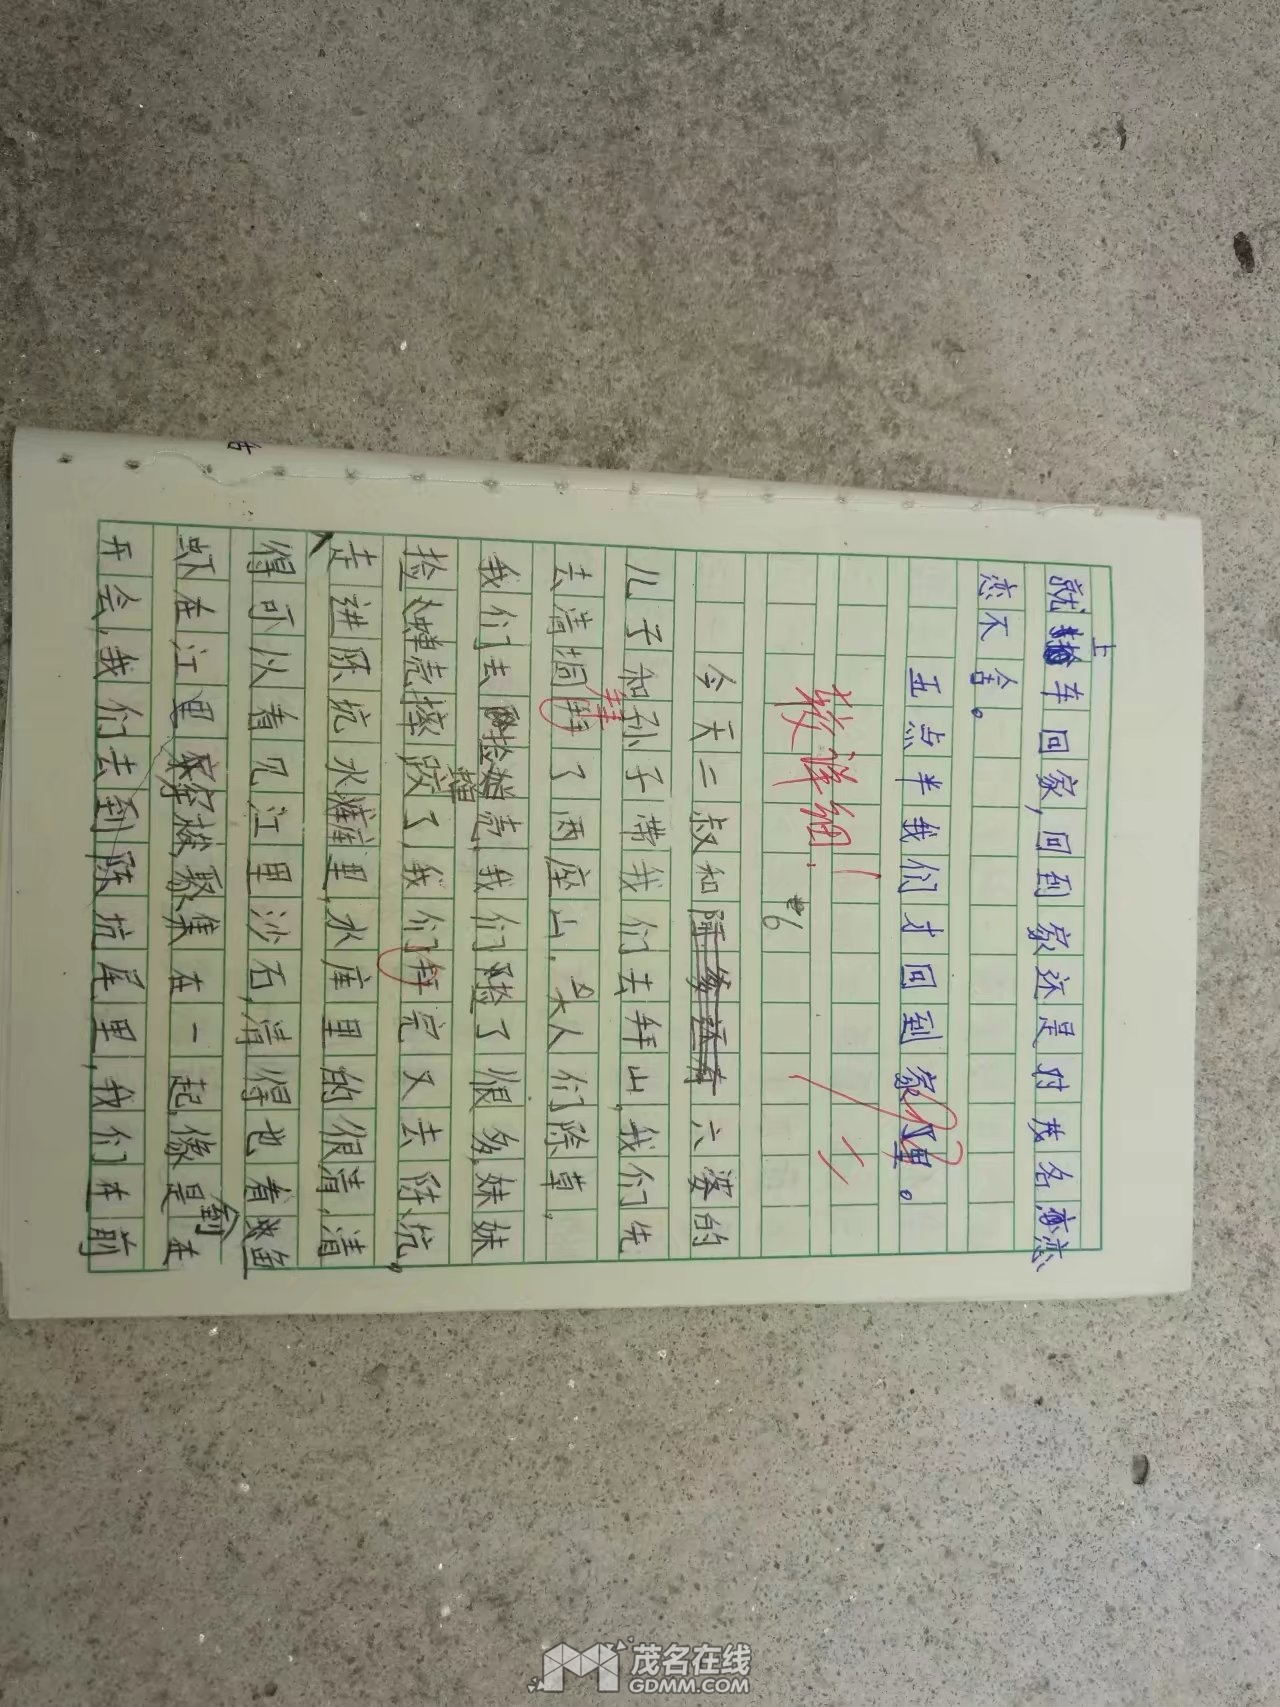 就上车回家,回到家还是对茂名恋恋
恋不舍。
五点半我们才回到家里。
较详细!
6
今天二叔和六婆的
儿子和孙子带我们去拜山,我们先
去淸垌拜了两座山,大人们除草,
我们去捡蝉壳,我们捡了很多,妹妹
捡蝉壳摔跤了我们拜完又去陈坑。
走进陈坑水库里,水库里的很清,清
得可以看见江里沙石,清得也看到鱼
虾在江里聚集在一起,像是在
开会,我们去到陈坑尾里,我们在前
茂名在线
GDMM.COM